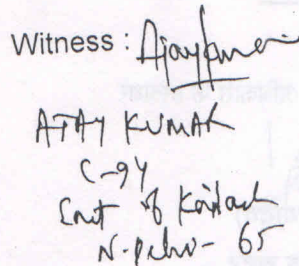 Witness : Ajay Kumar
AJAY KUMAR
C-94
East of Kailash
N. Delhi - 65